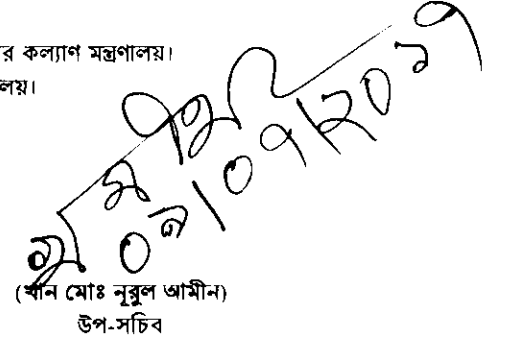 র কল্যাণ মন্ত্রণালয়।
লয়।
০৯/০৭/২০১৭
(খান মোঃ নূরুল আমীন)
উপ-সচিব